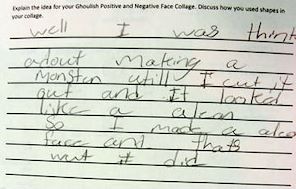 Explain the idea for your Ghoulish Positive and Negative Face Collage. Discuss how you used shapes in
your collage.
well I was think
about making a
Monster utill I cut it
out and It looked
like a alean
So I made a alea
face and thats
wut it did